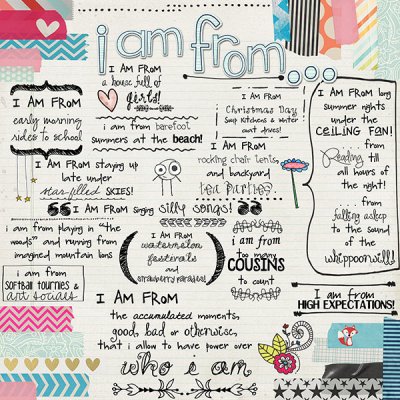 i am from...
I AM FROM
a house full of
girls!
I AM FROM
Christmas Day
Soup kitchens & winter
coat drives!
I AM FROM long
summer nights
under the
CEILING FAN!
from
Reading till
all hours of
the night!
from
falling asleep
to the sound
of the
whippoorwill!
I AM FROM
early morning
rides to school
i am from barefoot
summers at the beach!
I AM FROM
rocking chair tents,
and backyard
tea parties.
I AM FROM staying up
late under
star-filled SKIES!
I AM FROM singing silly songs!
i am from playing in "the
woods" and running from
imagined mountain lions
I AM FROM
watermelon
festivals
and
strawberry parades!
i am from
too many
COUSINS
to count
i am from
SOFTBALL TOURNIES &
art socials
I AM FROM
the accumulated moments,
good, bad or otherwise,
that i allow to have power over
who i am
i am from
HIGH EXPECTATIONS!